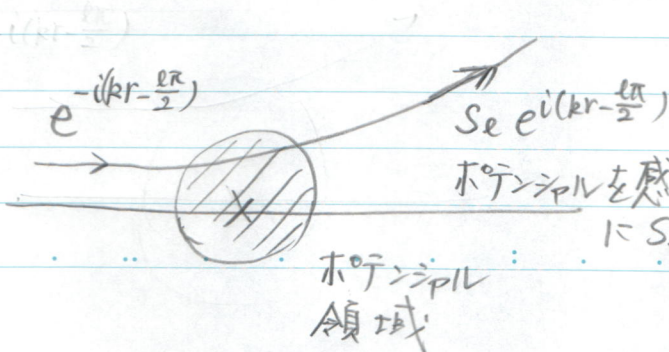 e^{-i(kr-\frac{ℓπ}{2})}
S_ℓ e^{i(kr-\frac{ℓπ}{2})}
ポテンシャルを感
に S
ポテンシャル
領域